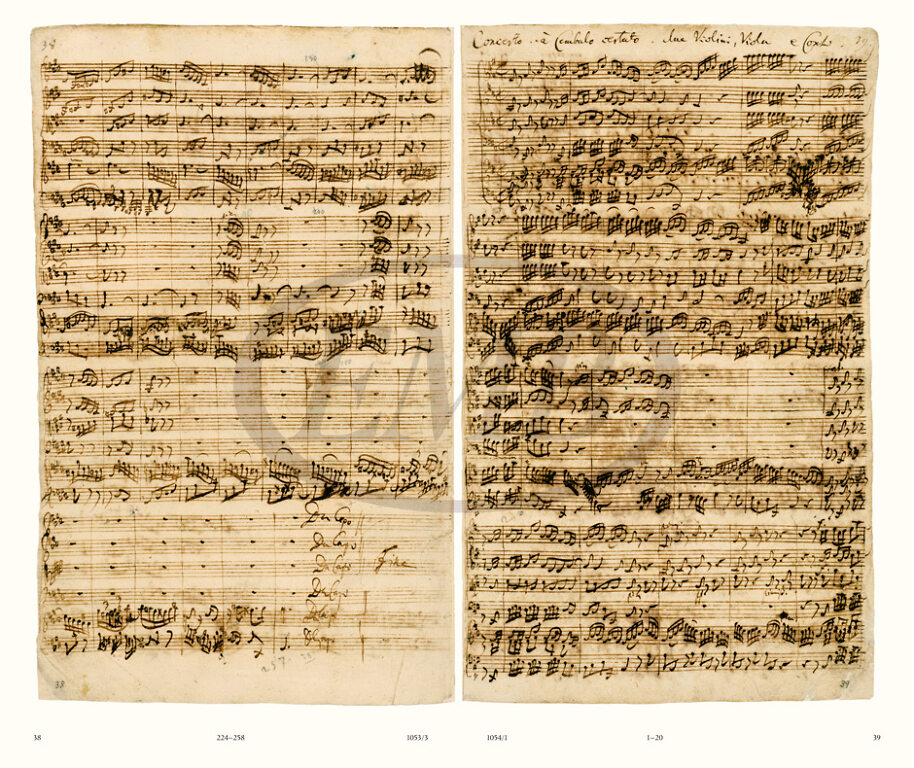 38
Da Capo
Da Capo
Da Capo Fine
Da Capo
Da Capo
Da Capo
257.
38
Concerto à Cembalo certato. due Violini, Viola e Cont. 39
39
EMB
38 224–258 1053/3
1054/1 1–20 39